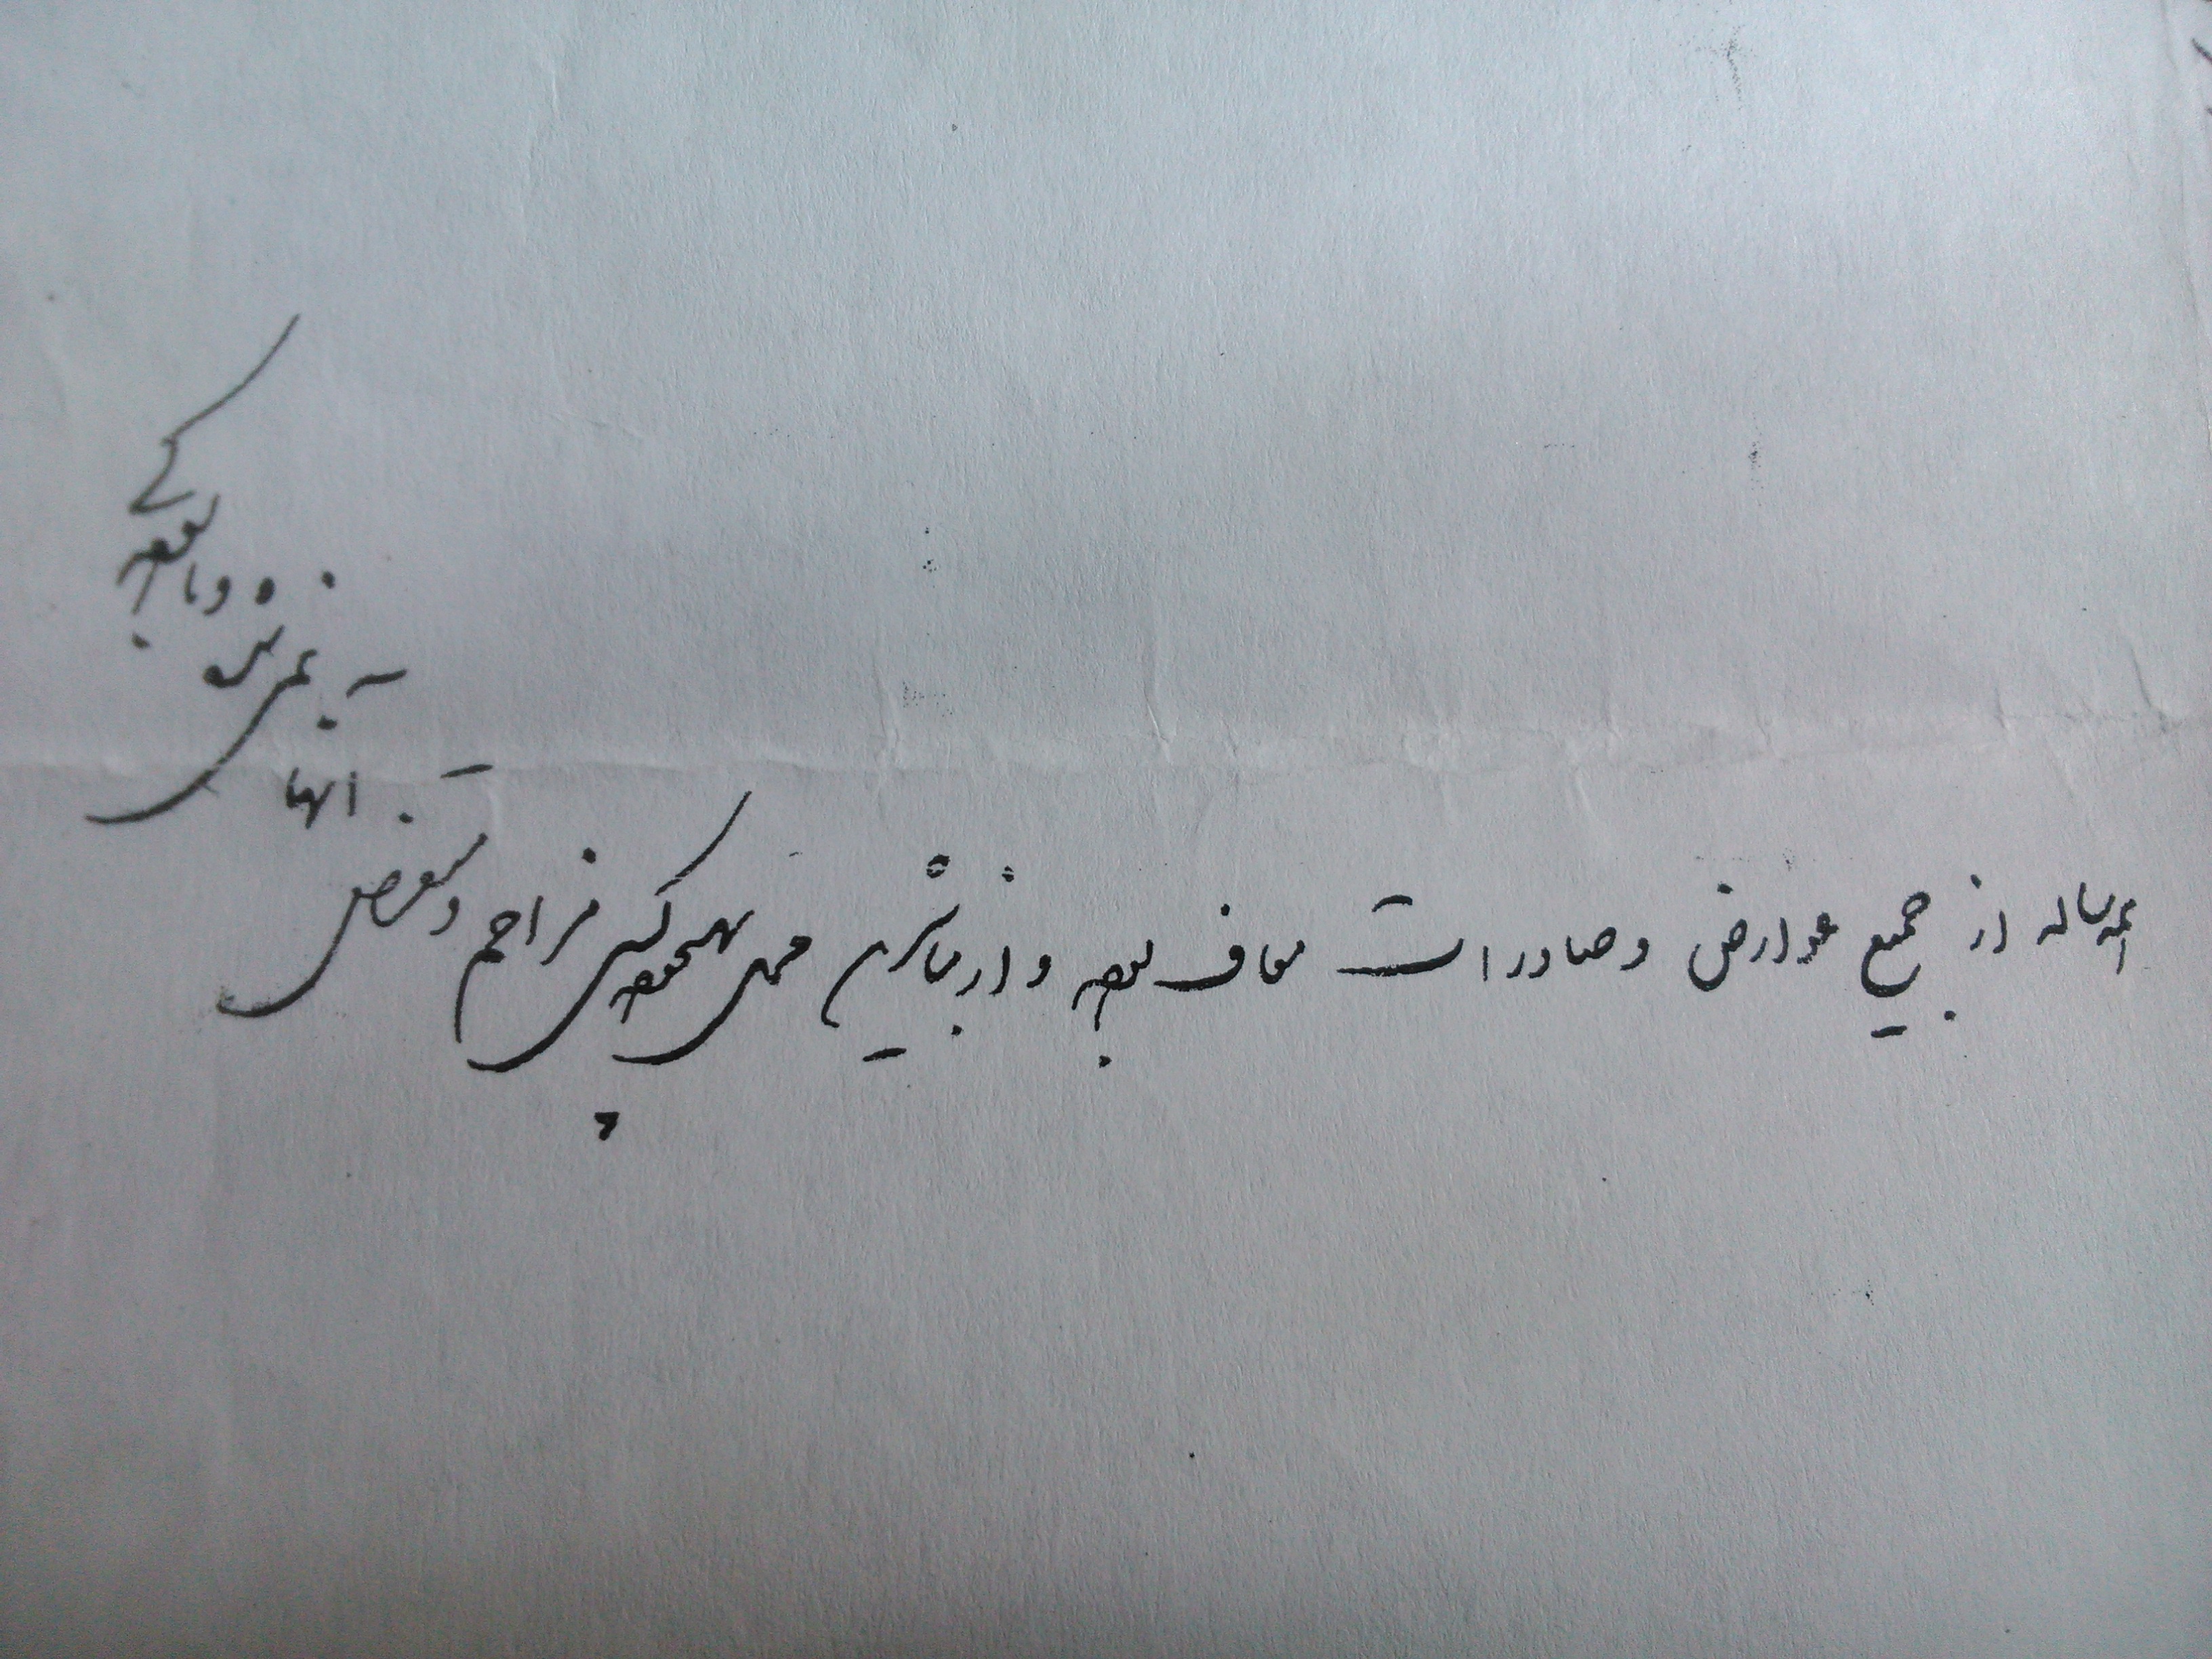 همه ساله از جمیع عوارض و صادرات معاف بوده و از مباشرین محل هیچوجه کسی مزاحم و متعرض
آنها
نمی شده و با بوده